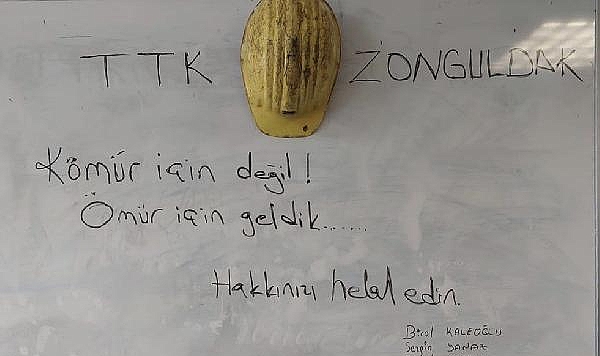 TTK ZONGULDAK
Kömür için değil!
Ömür için geldik......
Hakkınızı helal edin.
Birol KALEOĞLU